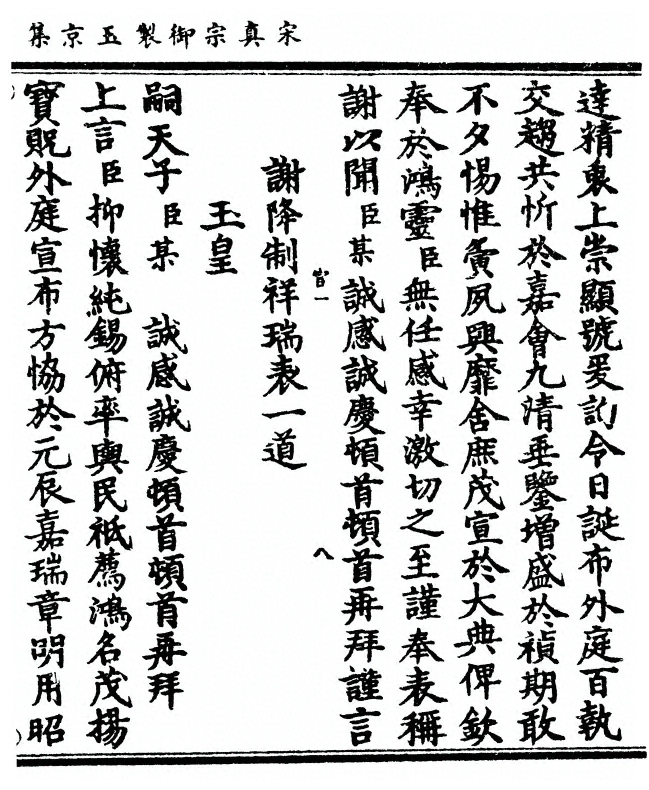 宋真宗御製玉京集
達精衷上崇顯號爰訋今日誕布外庭百執
交趨共忻於嘉會九清垂鑒增盛於禎期敢
不夕惕惟夤夙興靡舍庶茂宣於大典俾欽
奉於鴻靈臣無任感幸激切之至謹奉表稱
謝以聞臣某誠感誠慶頓首頓首再拜謹言
八
謝降制祥瑞表一道
玉皇
嗣天子臣某 誠感誠慶頓首頓首再拜
上言臣抑懷純錫俯率輿民祗薦鴻名茂揚
寶貺外庭宣布方恊於元辰嘉瑞章明用昭